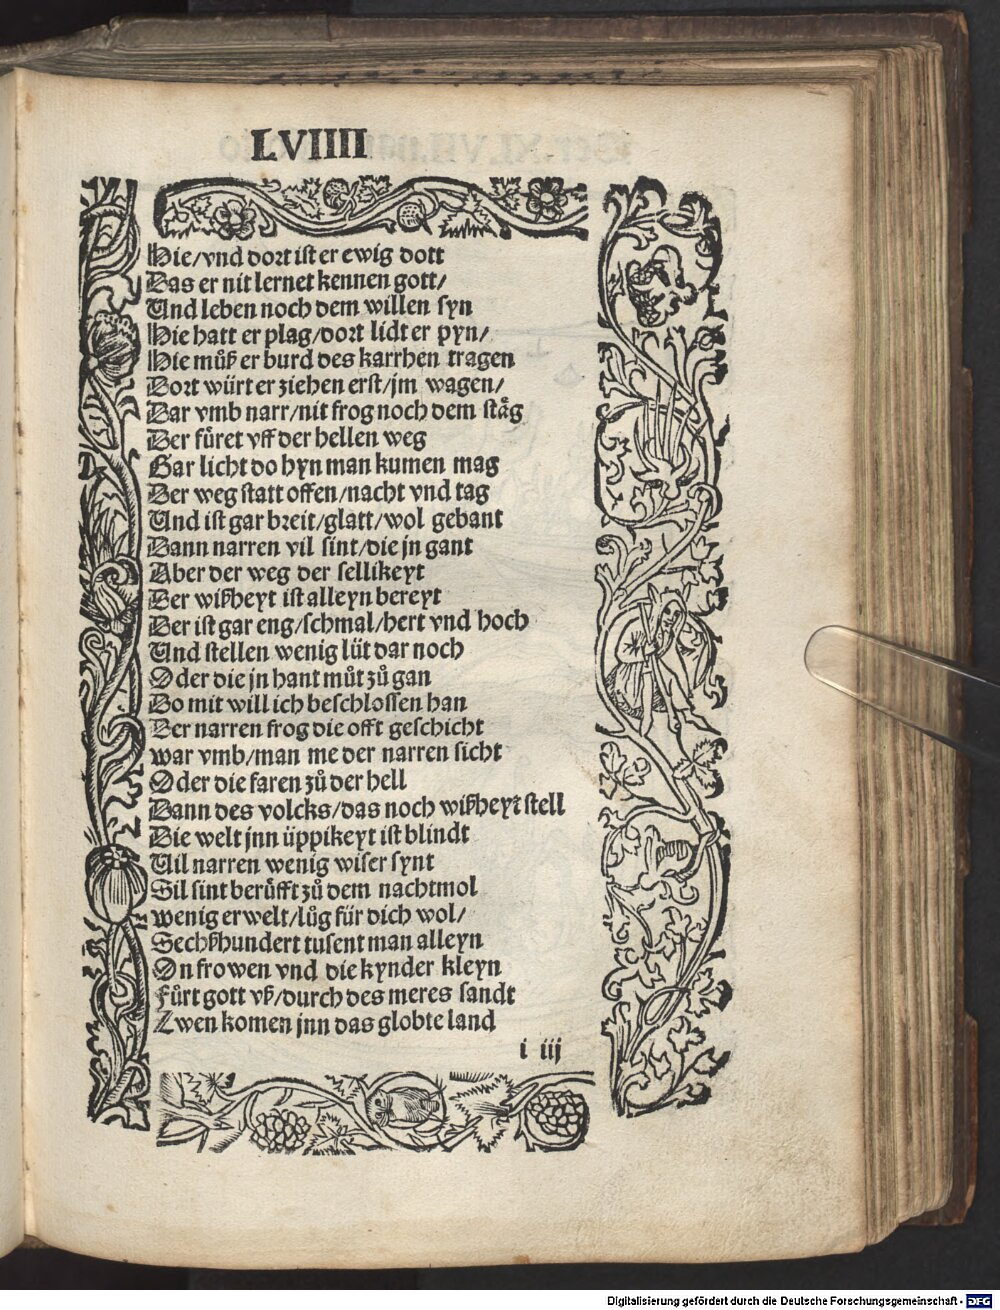 LVIIII
Hie/vnd dort ist er ewig dott
Das er nit lernet kennen gott/
Vnd leben noch dem willen syn
Hie hatt er plag/dort lidt er pyn/
Hie muͦß er burd des karrhen tragen
Dort würt er ziehen erst/jm wagen/
Dar vmb narr/nit frog noch dem staͤg
Der fuͤret vff der hellen weg
Gar licht do hyn man kumen mag
Der weg statt offen/nacht vnd tag
Vnd ist gar breit/glatt/wol gebant
Dann narren vil sint/die jn gant
Aber der weg der sellikeyt
Der wißheyt ist alleyn bereyt
Der ist gar eng/schmal/hert vnd hoch
Vnd stellen wenig lüt dar noch
Oder die jn hant muͦt zuͦ gan
Do mit will ich beschlossen han
Der narren frog die offt geschicht
war vmb/man me der narren sicht
Oder die faren zuͦ der hell
Dann des volcks/das noch wißheyt stell
Die welt jnn üppikeyt ist blindt
Vil narren wenig wiser synt
Vil sint beruͤfft zuͦ dem nachtmol
wenig erwelt/luͦg für dich wol/
Sechßhundert tusent man alleyn
On frowen vnd die kynder kleyn
Fuͦrt gott vß/durch des meres sandt
Zwen komen jnn das globte land
i iij
Digitalisierung gefördert durch die Deutsche Forschungsgemeinschaft - DFG